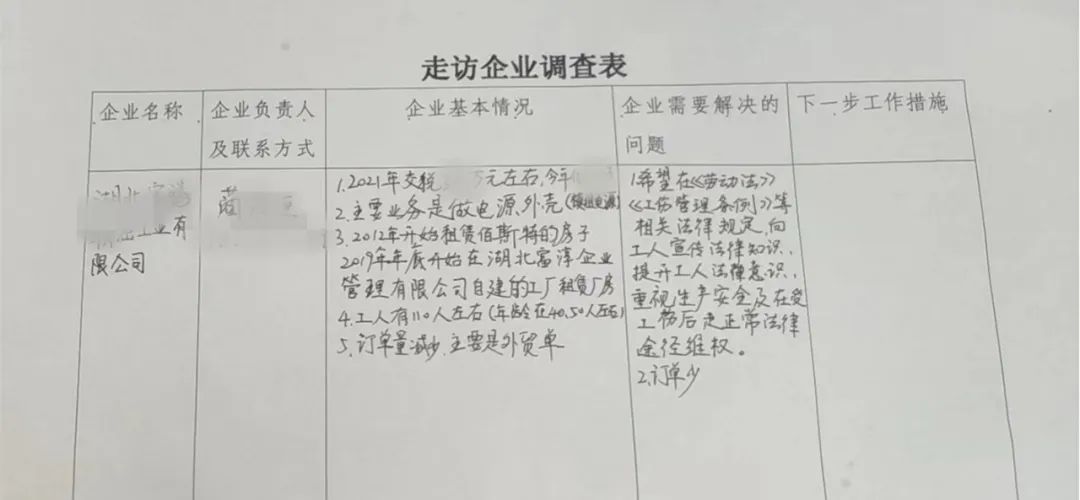 走访企业调查表
企业名称
企业负责人
及联系方式
企业基本情况
企业需要解决的
问题
下一步工作措施
湖北富
工业有
限公司
1.2021年交税 万元左右,今年
2.主要业务是做电源外壳(模组电源)
3.2012年开始租赁佰斯特的房子
2019年年底开始在湖北富淳企业
管理有限公司自建的工厂租赁厂房
4.工人有110人左右(年龄在40.50人左右)
5.订单量减少.主要是外贸单
1.希望在《劳动法》
《工伤管理条例》等
相关法律规定,向
工人宣传法律知识,
提升工人法律意识,
重视生产安全及在受
工伤后走正常法律
途径维权。
2.订单少